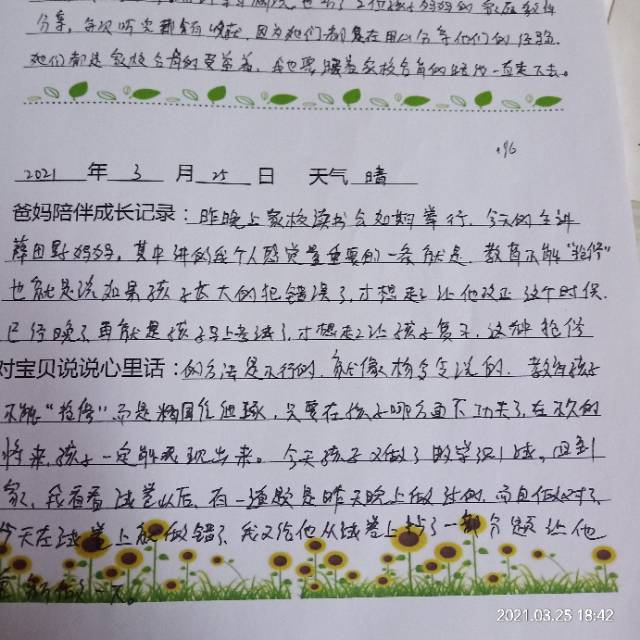 分享，每次听完都有收获，因为她们都是在用心分享他们的经验。
她们都是家校合育的受益者，我也要跟着家校合育的脚步一直走下去。
+96
2021 年 3 月 25 日 天气 晴
爸妈陪伴成长记录：昨晚上家校读书会如期举行，今天的主讲
薛田野妈妈，其中讲的我个人感觉最重要的一条就是，教育不能“抢修”
也就是说如果孩子长大的犯错误了，才想起让他改正这个时候，
已经晚了再就是孩子马上考试了，才想起让孩子复习，这种抢修
对宝贝说说心里话：的方法是不行的，就像杨令老说的，教育孩子
不能“抢修”而是精国在细琢，只要在孩子哪方面下功夫了，在不久的
将来，孩子一定能表现出来。今天孩子又做了数学识测，回到
家，我看看试卷以后，有一道题是昨天晚上做过的，而且做对了
今天在试卷上就做错了，我又给他从试卷上抄了一部分题让他
重新做了一下。
2021.03.25 18:42